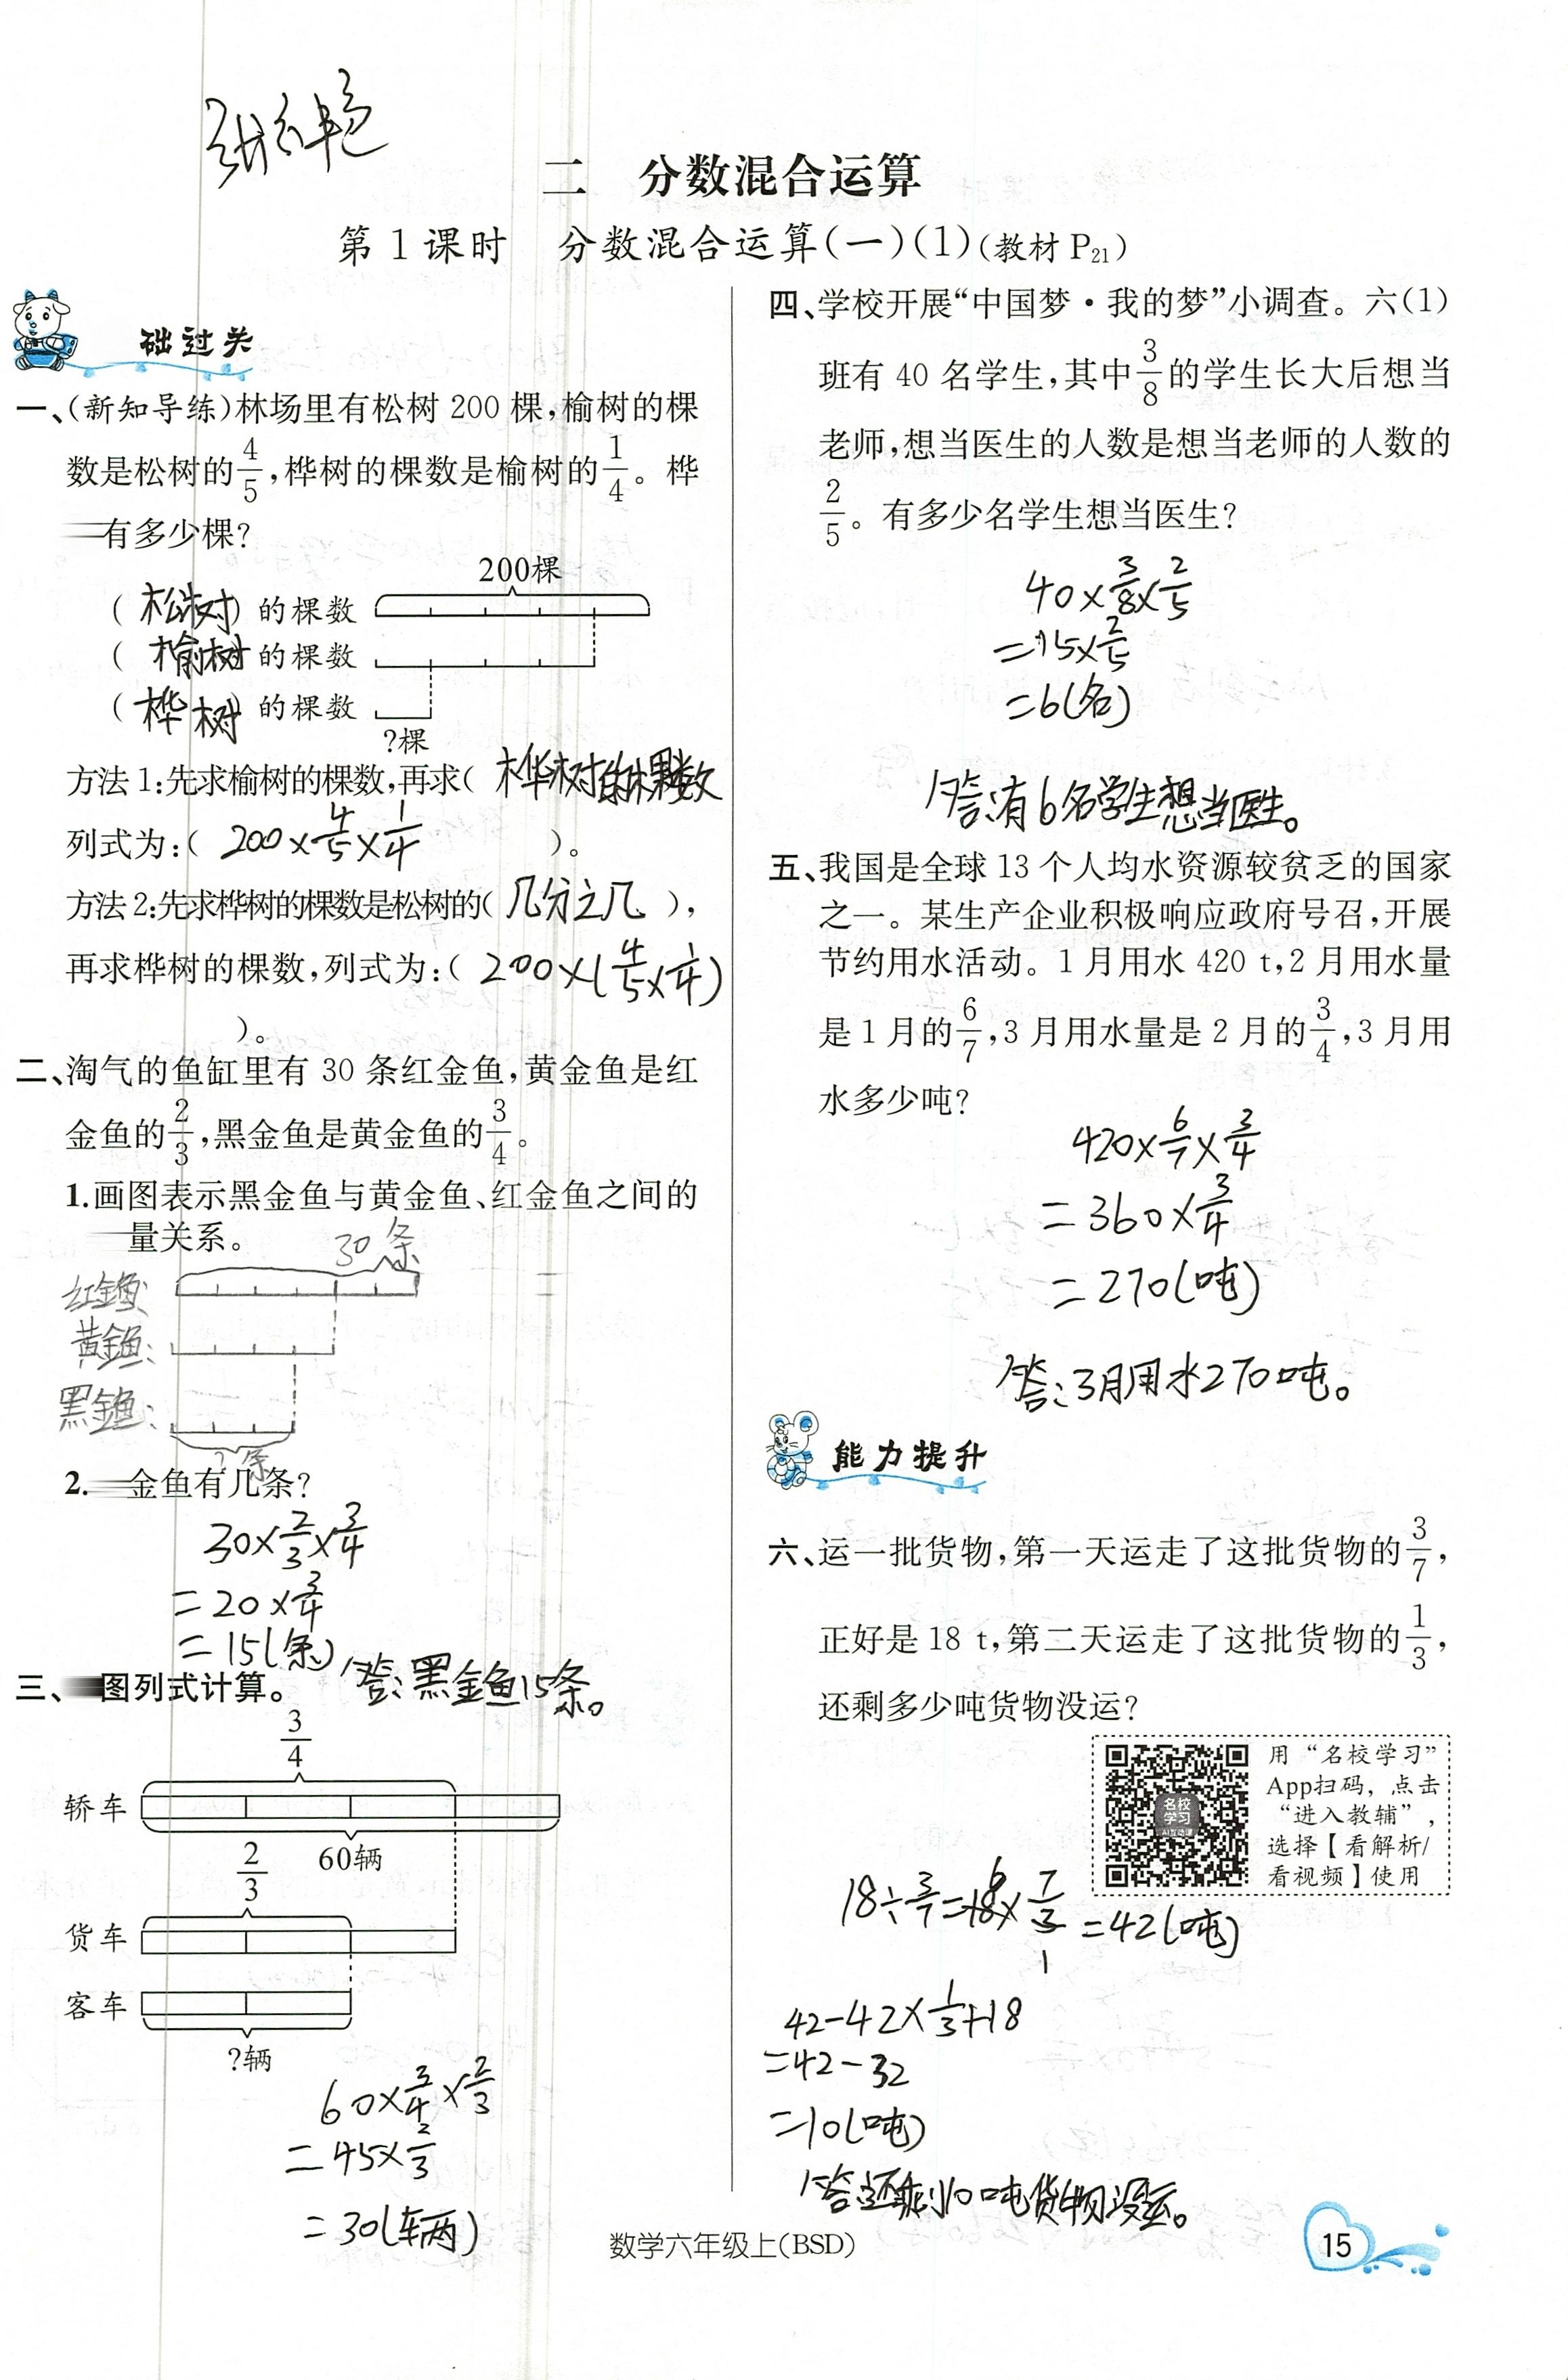 二 分数混合运算
第1课时 分数混合运算(一)(1)(教材P21)
础过关
一、(新知导练)林场里有松树200棵,榆树的棵
数是松树的4/5,桦树的棵数是榆树的1/4。桦
有多少棵?
200棵
(松树)的棵数
(榆树)的棵数
(桦树)的棵数
?棵
方法1:先求榆树的棵数,再求(桦树的棵数
列式为:(200×4/5×1/4)。
方法2:先求桦树的棵数是松树的(几分之几),
再求桦树的棵数,列式为:(200×(4/5×1/4)
)。
二、淘气的鱼缸里有30条红金鱼,黄金鱼是红
金鱼的2/3,黑金鱼是黄金鱼的3/4。
1.画图表示黑金鱼与黄金鱼、红金鱼之间的
量关系。
30条
红金鱼:
黄金鱼:
黑金鱼:
?条
2. 金鱼有几条?
30×2/3×3/4
=20×3/4
=15(条)
答:黑金鱼15条。
三、 图列式计算。
3/4
轿车
60辆
2/3
货车
客车
?辆
60×3/4×2/3
=45×2/3
=30(辆)
四、学校开展“中国梦·我的梦”小调查。六(1)
班有40名学生,其中3/8的学生长大后想当
老师,想当医生的人数是想当老师的人数的
2/5。有多少名学生想当医生?
40×3/8×2/5
=15×2/5
=6(名)
答:有6名学生想当医生。
五、我国是全球13个人均水资源较贫乏的国家
之一。某生产企业积极响应政府号召,开展
节约用水活动。1月用水420 t,2月用水量
是1月的6/7,3月用水量是2月的3/4,3月用
水多少吨?
420×6/7×3/4
=360×3/4
=270(吨)
答:3月用水270吨。
能力提升
六、运一批货物,第一天运走了这批货物的3/7,
正好是18 t,第二天运走了这批货物的1/3,
还剩多少吨货物没运?
用“名校学习”
App扫码,点击
“进入教辅”,
选择【看解析/
看视频】使用
名校
学习
AI互动课
18÷3/7=18×7/3=42(吨)
6
1
42-42×1/3+18
=42-32
=10(吨)
答:还剩10吨货物没运。
数学六年级上(BSD)
15